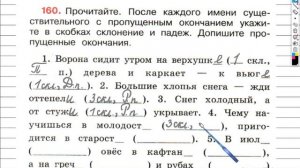 160. Прочитайте. После каждого имени суще-
ствительного с пропущенным окончанием укажи-
те в скобках склонение и падеж. Допишите про-
пущенные окончания.
1. Ворона сидит утром на верхушке (1 скл.,
П п.) дерева и каркает — к вьюге
(1скл., Дп.). 2. Большие хлопья снега — жди
оттепели (3скл., Рп.). 3. Снег холодный, а
от стужи (1скл., Рп.) укрывает. 4. Чему на-
учишься в молодост (3скл.,), приго-
дится в старост ( ). 5. В июл
( ) овёс в кафтан ( ),
а на греч ( ) и рубах (